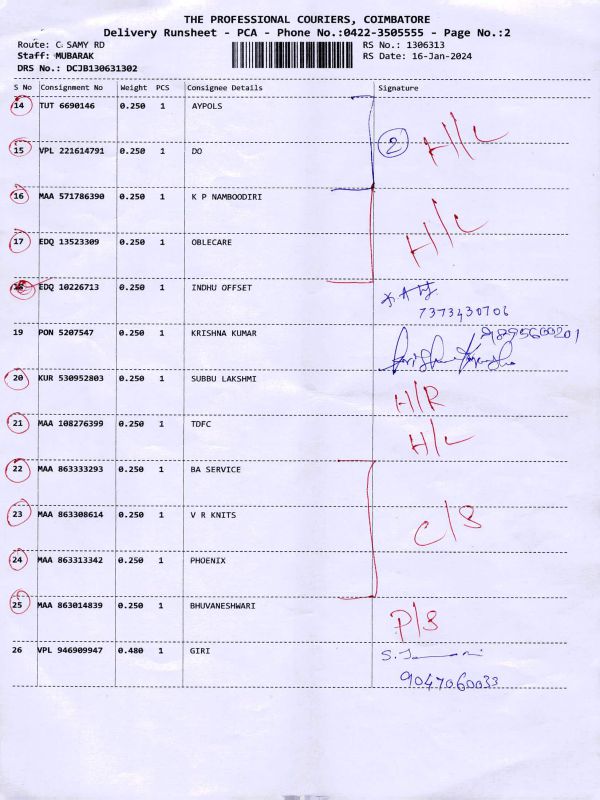 THE PROFESSIONAL COURIERS, COIMBATORE
Delivery Runsheet - PCA - Phone No.:0422-3505555 - Page No.:2
Route: C SAMY RD RS No.: 1306313
Staff: MUBARAK RS Date: 16-Jan-2024
DRS No.: DCJB130631302
S No Consignment No Weight PCS Consignee Details Signature
14 TUT 6690146 0.250 1 AYPOLS
2 H/L
15 VPL 221614791 0.250 1 DO
16 MAA 571786390 0.250 1 K P NAMBOODIRI
H/L
17 EDQ 13523309 0.250 1 OBLECARE
18 EDQ 10226713 0.250 1 INDHU OFFSET
7373430706
19 PON 5207547 0.250 1 KRISHNA KUMAR
20 KUR 530952803 0.250 1 SUBBU LAKSHMI H/R
21 MAA 108276399 0.250 1 TDFC H/L
22 MAA 863333293 0.250 1 BA SERVICE
23 MAA 863308614 0.250 1 V R KNITS C/S
24 MAA 863313342 0.250 1 PHOENIX
25 MAA 863014839 0.250 1 BHUVANESHWARI P/S
26 VPL 946909947 0.480 1 GIRI
9047060033